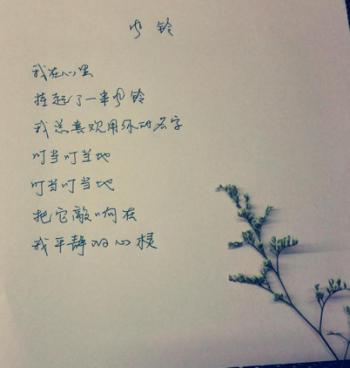 风铃
我在心里
挂起了一串风铃
我总喜欢用你的名字
叮当叮当地
叮当叮当地
把它敲响在
我平静的心楼